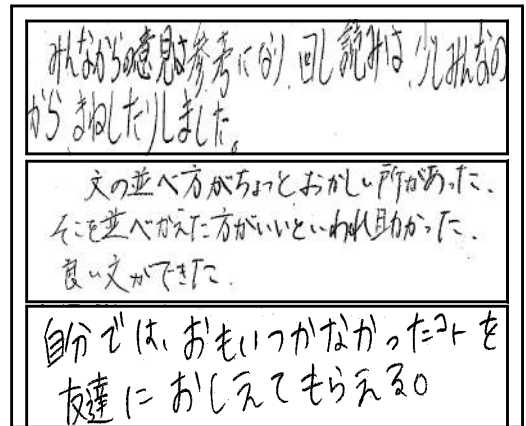 みんなからの意見は参考になり、回し読みは、少しみんなの
から まねしたりしました。
文の並べ方がちょっとおかしい所があった、
そこを並べかえた方がいいといわれ助かった、
良い文ができた
自分では、おもいつかなかったコトを
友達に おしえてもらえる。